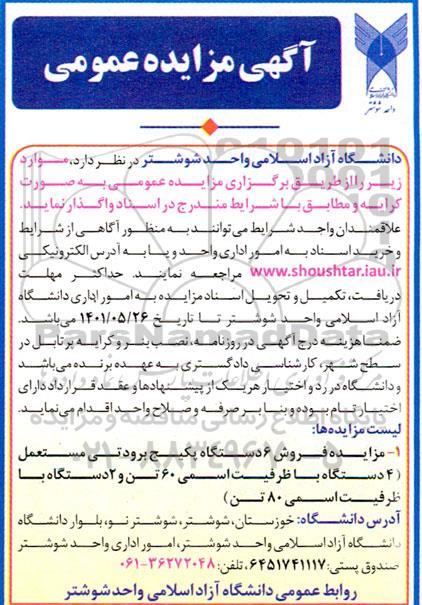 آگهی مزایده عمومی
واحد شوشتر
دانشگاه آزاد اسلامی واحد شوشتر در نظر دارد، موارد
زیر را از طریق برگزاری مزایده عمومی به صورت
کرایه و مطابق با شرایط مندرج در اسناد واگذار نماید.
علاقمندان واجد شرایط می توانند به منظور آگاهی از شرایط
و خرید اسناد به امور اداری واحد و یا به آدرس الکترونیکی
www.shoushtar.iau.ir مراجعه نمایند. حداکثر مهلت
دریافت، تکمیل و تحویل اسناد مزایده به امور اداری دانشگاه
آزاد اسلامی واحد شوشتر تا تاریخ ۱۴۰۱/۰۵/۲۶ می باشد.
ضمنا هزینه درج آگهی در روزنامه، نصب بنر و کرایه پرتابل در
سطح شهر، کارشناسی دادگستری به عهده برنده می باشد
و دانشگاه در رد و اختیار هر یک از پیشنهادها و عقد قرارداد دارای
اختیار تام بوده و بنابر صرفه و صلاح واحد اقدام می نماید.
لیست مزایده ها:
۱- مزایده فروش ۶ دستگاه پکیج برودتی مستعمل
(۴ دستگاه با ظرفیت اسمی ۶۰ تن و ۲ دستگاه با
ظرفیت اسمی ۸۰ تن)
آدرس دانشگاه: خوزستان، شوشتر، شوشتر نو، بلوار دانشگاه
دانشگاه آزاد اسلامی واحد شوشتر، امور اداری واحد شوشتر
صندوق پستی: ۶۴۵۱۷۴۱۱۱۷، تلفن: ۰۶۱-۳۶۲۷۲۰۴۸
روابط عمومی دانشگاه آزاد اسلامی واحد شوشتر
ParsNamadData
۰۲۱-۸۸۳۴۹۶۷۰-۵